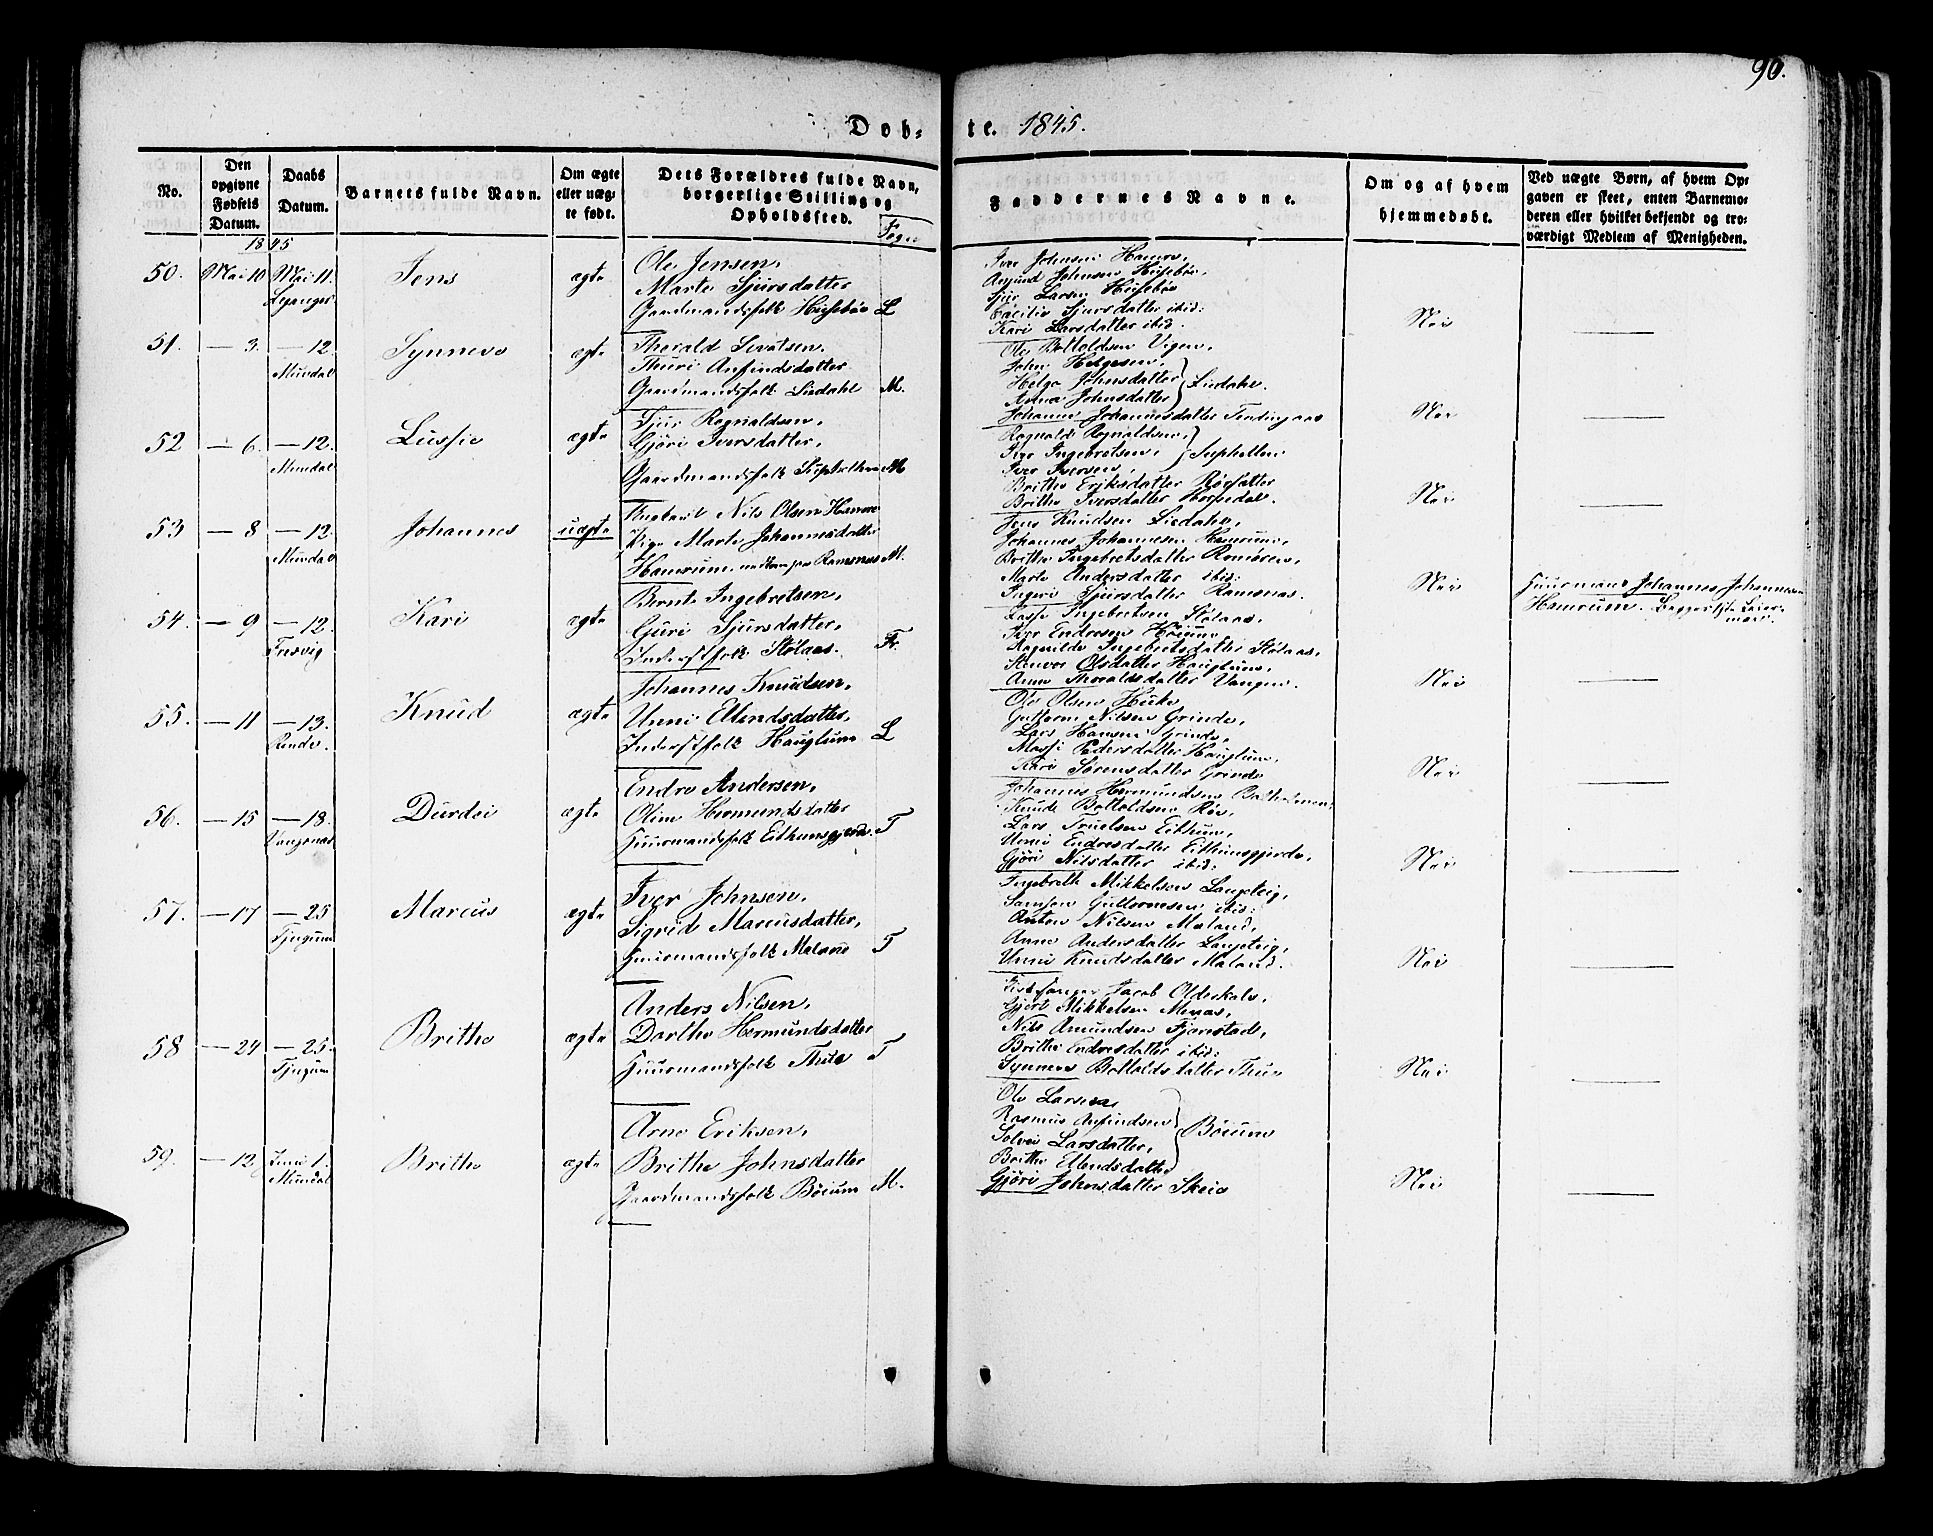 90.
Døb- te. 1845.
No.
Den opgivne Fødsels Datum.
Daabs Datum.
Barnets fulde Navn.
Om ægte eller uægte født.
Dets Forældres fulde Navn, borgerlige Stilling og Opholdssted.
Sogn
Faddernes Navne.
Om og af hvem hjemmedøbt.
Ved uægte Børn, af hvem Opgaven er skeet, enten Barnemoderen eller hvilket bekjendt og troværdigt Medlem af Menigheden.
1845
50. Mai 10 Mai 11. Jens ægte Ole Jensen,
Lekanger Marte Sjursdatter
Gaardmandsfolk Husebøe L
Iver Johnsen Hamre,
Amund Johnsen Husebøe,
Sjur Larsen Husebøe
Cæcilie Sjursdatter ibid:
Kari Larsdatter ibid. Nei
51. — 3. — 12 Synneve ægte Therald Sivatsen.
Mundal Thuri Anfindsdatter
Gaardmandsfolk Liedahl M.
Ole Bottoldsen Vigen,
John Helgesen,
Helga Johnsdatter
Anna Johnsdatter } Liedahl.
Johanne Johannesdatter Nei
52 — 6. — 12. Lussie ægte Sjur Rognaldsen,
Mundal Gjøri Iversdatter,
Gaardmandsfolk Suphellen M
Rognald Rognaldsen,
Iver Ingebretsen,
Iver Iversen, } Suphellen
Britha Eriksdatter
Britha Iversdatter Horpedal. Nei
53 — 8 — 12. Johannes uægte Nils Olsen Hamre
Mundal Pige Marte Johannesdatter
Hamrum. Ramsnæs M.
Jens Knudsen Liedahl,
Johannes Johannesen Hamrum,
Britha Ingebretsdatter Romøren,
Marte Andersdatter ibid:
Ingeri Sjursdatter Ramsnæs. Nei
Huusmand Johannes Johannesen
Hamrum.
54. — 9 — 12. Kari ægte Bernt Ingebretsen,
Fresvig Guri Sjursdatter,
Inderstfolk Stølaas. Fr.
Lasse Ingebretsen Stølaas,
Iver Endresen Høium
Ragnilde Ingebretsdatter Stølaas,
Olsdatter Hauglum,
Anna Thoraldsdatter Vangen. Nei
55. — 11 — 13. Knud ægte Johannes Knudsen,
Rinde. Unni Ellendsdatter,
Inderstfolk Hauglum L
Ole Olsen Huke,
Guttorm Nilsen Grinde,
Lars Hansen Grinde,
Massi Pedersdatter Hauglum,
Kari Sørensdatter Grinde Nei
56. — 15 — 18. Durdei ægte Endre Andersen,
Vangsnæs Oline Hermundsdatter
Huusmandsfolk Eithunsgjerde. T
Johannes Hermundsen
Knud Bottoldsen Røe,
Lars Truelsen Eithun,
Unni Endresdatter Eithunsgjerde,
Gjøri Nilsdatter ibid: Nei
57. — 17 — 25 Marcus ægte Iver Johnsen,
Tjugum Sigrid Marcusdatter,
Huusmandsfolk Meland T
Ingebreth Mikkelsen Langeteig,
Samson Guttormsen ibid:
Anton Nilsen Meland,
Anne Andersdatter Langeteig,
Unni Knudsdatter Meland. Nei
58 — 24 — 25. Britha ægte Anders Nilsen,
Tjugum Dorthe Hermundsdatter
Huusmandsfolk T
Kirkesanger Jacob Olderskale,
Gjert Mikkelsen Menæs,
Nils Amundsen Fjærestad,
Britha Endresdatter ibid:
Synneve Bottoldsdatter Thue Nei
59. — 12 Juni 1. Britha ægte Arne Eriksen,
Mundal Brithe Johnsdatter
Gaardmandsfolk Bøium M.
Ole Larsen,
Rasmus Anfindsen
Solvei Larsdatter,
Britha Ellendsdatter } Bøium
Gjøri Johnsdatter Skeie Nei